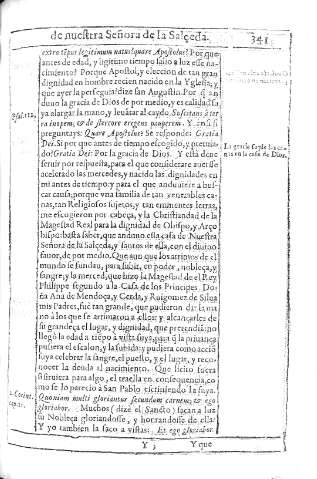 de nuestra Señora de la Salçeda. 341
extra tẽpus legitimum natus? quare Apostolus? Porque
antes de edad, y ligitimo tiempo salio a luz ese na-
cimiento? Porque Apostol, y eleccion de tan gran
dignidad en hombre recien nacido en la Yglesia, y
que ayer la perseguia? dize san Augustin. Por q̃ an
duuo la gracia de Dios de por medio, y es calidad suya
ya alargar la mano, y leuãtar al caydo. Suscitans à ter
Psal. 112. ra inopem, & de stercore erigens pauperem. Y ansi si
preguntays: Quare Apostolus? Se responde: Gratia
Dei. Si por que antes de tiempo escogido, y
do? Gratia Dei: Por la gracia de Dios. Y esta deue
La gracia
en la casa de Dios.
seruir por respuesta, para el que considerare
acelerado las mercedes, y nacido las dignidades en
mi antes de tiempo y para el que anduuiere a bus-
car causa, porque vna familia de tan venerables ca-
nas, tan Religiosos sujetos, y tan eminentes letras,
me escogieron por cabeça, y la Christiandad de la
Magestad Real para la dignidad de Obispo, y Arço
bispo: basta saber, que anduuo en ella casa de Nuestra
Señora de la Salçeda, y santos de ella, con el diuino
fauor, de por medio. Que aun que los arrimos de el
mundo se fundan, para subir, en poder, nobleça, y
sangre, y la merced, que hizo la Magestad de el Rey
Philippe segundo a la Casa de los Principes Do
ña Ana de Mendoça, y Cerda, y Ruigomez de Silua
mis Padres, fue tan grande, que pudieron dar la ma
no à los que se arrimaron a ellos, y alcançarles de
su grandeça el lugar, y dignidad, que pretendiã: no
llegò la edad a tiẽpo à vista suya, para q̃ la priuança
pusiera el escalon, y la subida: y pudiera como acció
suya celebrar la sangre, el puesto, y el lugar, y reco-
nocer la deuda al nacimiento. Que licito fuera
si siruiera para algo, el traella en consequencia, co
mo se lo parecio à San Pablo sictiuiendo la suya.
2. Corint. Quoniam multi gloriantur secundum carnem, & ego
cap. 11. gloriabor. Muchos (dize el Sancto) sacan a luz
su Nobleça gloriandosse, y honrandosse de ella.
Y yo tambien la saco a vistas: Et ego gloriabor.
Y 3 Y que